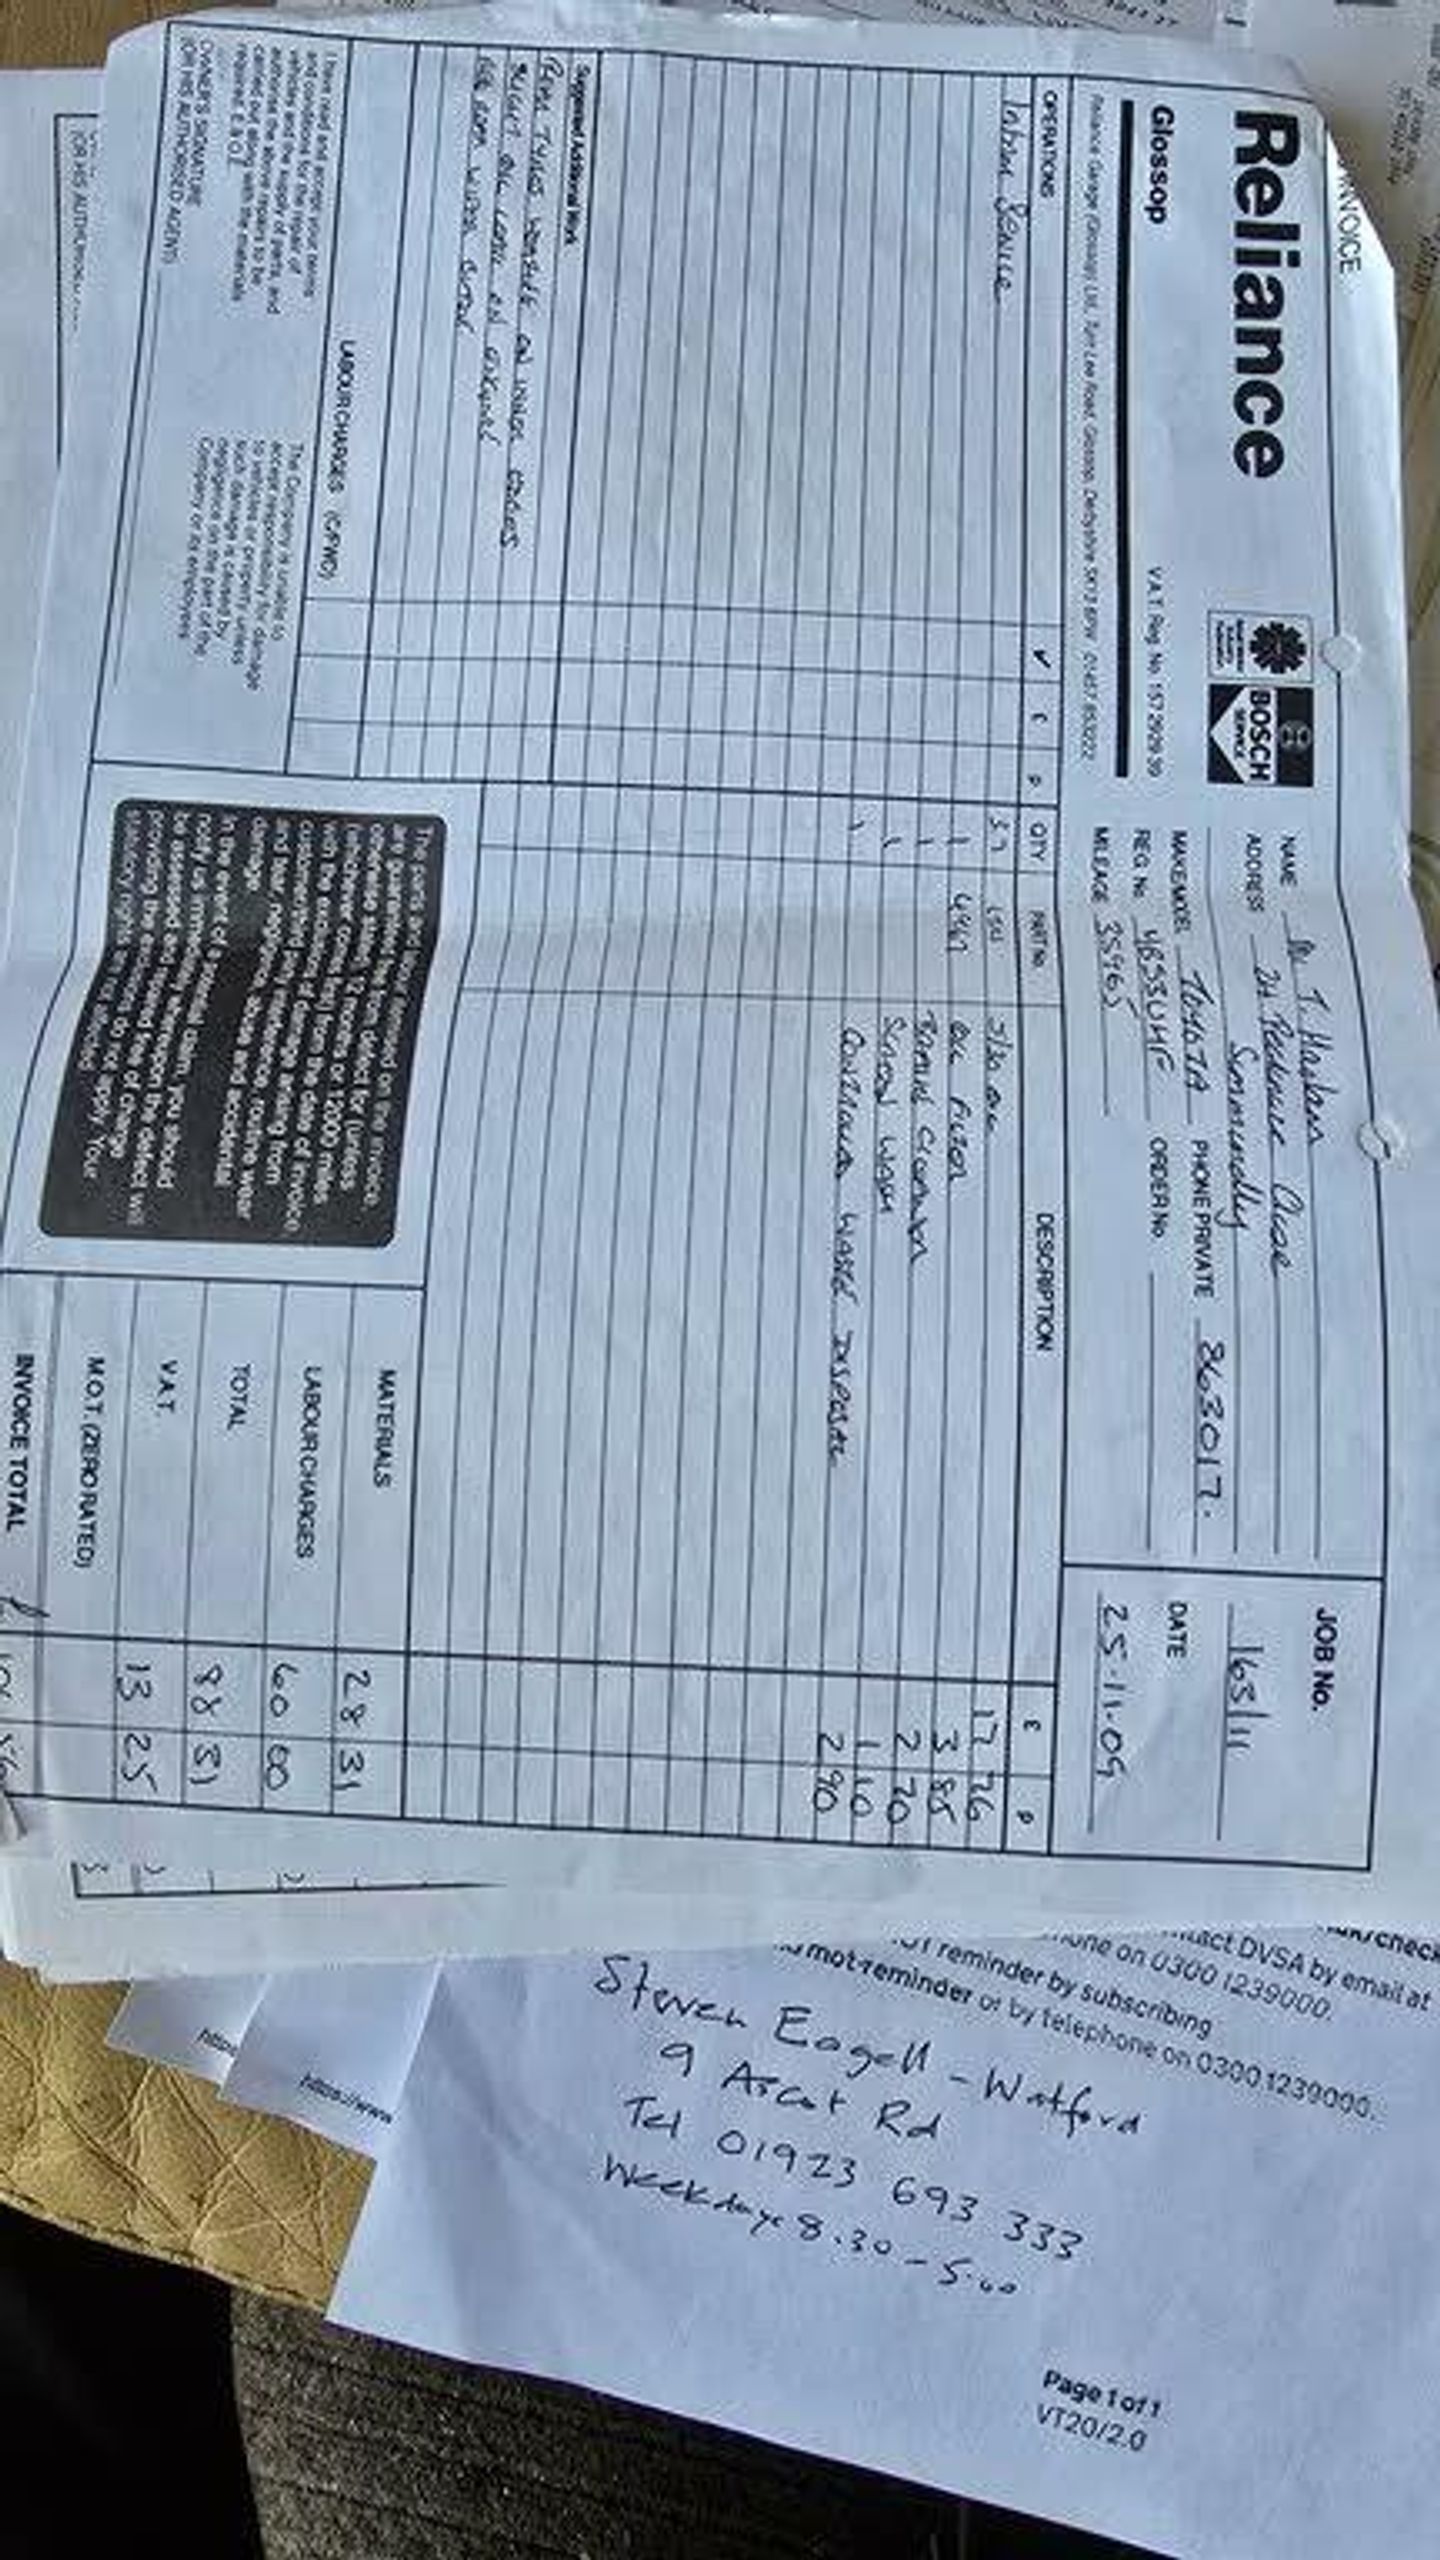 INVOICE
Reliance
Glossop
V.A.T. Reg. No. 157 2929 39
BOSCH
SERVICE
Reliance Garage (Glossop) Ltd., Turn Lee Road, Glossop, Derbyshire SK13 6PW 01457 853222
NAME Mr T. Haslam
ADDRESS Close
Simmondley
MAKE/MODEL TOYOTA PHONE PRIVATE 863017.
REG. No. ORDER No
MILEAGE 35965
JOB No.
163/11
DATE
25.11.09
OPERATIONS ✓ £ P QTY PART No. DESCRIPTION £ P
Interim Service
5W OIL 17 26
1 4447 OIL FILTER 3 85
1 BRAKE CLEANER 2 20
1 SCREEN WASH 1 10
1 CONTROLLED WASTE DISPOSAL 2 90
Suggested Additional Work
REAR TYRES WORN ON INNER EDGES
SLIGHT OIL LEAK ON
WIPER
LABOUR CHARGES (C/FWD)
I have read and accept your terms
and conditions for the repair of
vehicles and the supply of parts, and
authorise the above repairs to be
carried out along with the materials
required. E.&O.E.
OWNER'S SIGNATURE
(OR HIS AUTHORISED AGENT)
The Company is unable to
accept responsibility for damage
to vehicles or property unless
such damage is caused by
negligence on the part of the
Company or its employees
The parts and labour itemised on the invoice,
are guaranteed free from defect for (unless
otherwise stated) 12 months or 12000 miles
(whichever comes first) from the date of invoice,
with the exclusion of damage arising from
customer/third party interference, routine wear
and tear, negligence, abuse and accidental
damage.
In the event of a potential claim, you should
notify us immediately whereupon the defect will
be assessed and repaired free of charge
providing the exclusions do not apply. Your
statutory rights are not affected.
MATERIALS 28 31
LABOUR CHARGES 60 00
TOTAL 88 31
V.A.T. 13 25
M.O.T. (ZERO RATED)
INVOICE TOTAL £
(OR HIS AUTHORISED
contact DVSA by email at
phone on 0300 1239000.
reminder by subscribing
mot-reminder or by telephone on 0300 1239000.
Steven Eagell - Watford
9 Ascot Rd
Tel 01923 693 333
Weekdays 8.30 - 5.00
https://www
Page 1 of 1
VT20/2.0